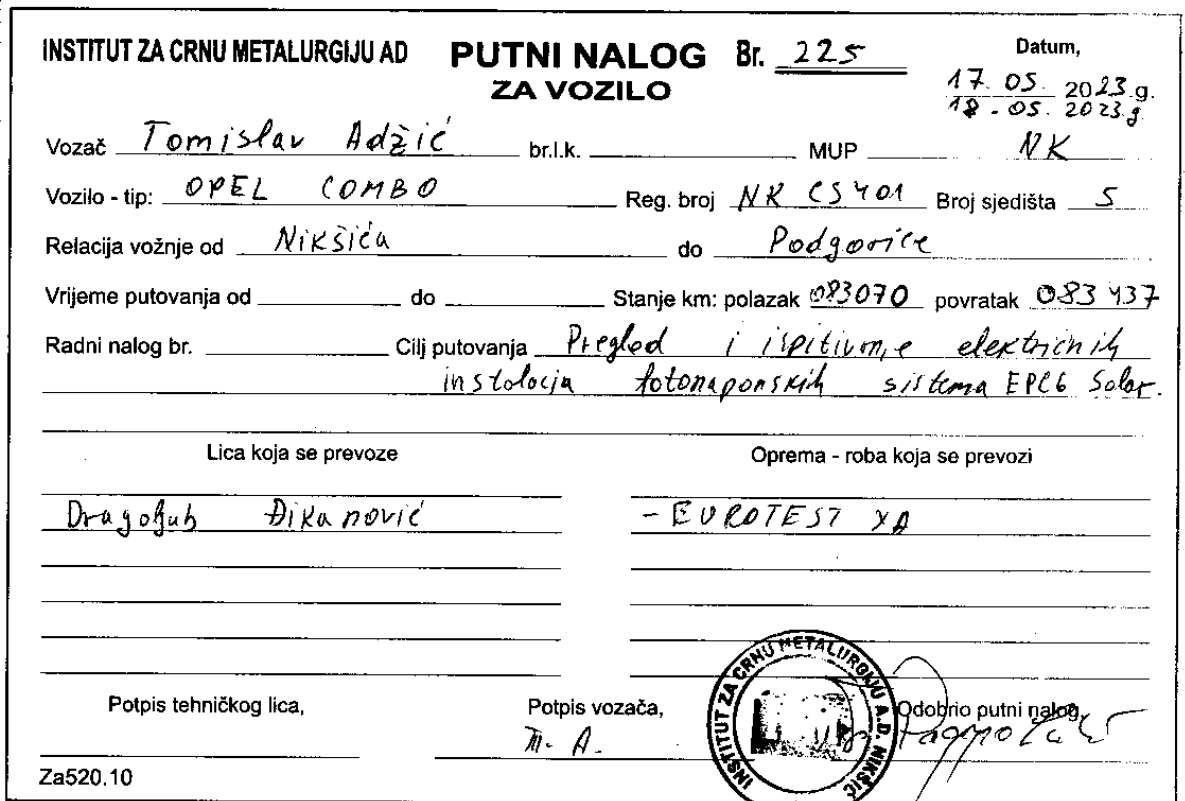 INSTITUT ZA CRNU METALURGIJU AD PUTNI NALOG Br. 225 Datum,
ZA VOZILO 17. 05. 2023.g.
18. 05. 2023.g
Vozač Tomislav Adžić br.l.k. MUP NK
Vozilo - tip: OPEL COMBO Reg. broj NK CS401 Broj sjedišta 5
Relacija vožnje od Nikšića do Podgorice
Vrijeme putovanja od do Stanje km: polazak 083070 povratak 083437
Radni nalog br. Cilj putovanja Pregled i ispitivanje električnih
instalacija fotonaponskih sistema EPCG Solar.
Lica koja se prevoze Oprema - roba koja se prevozi
Dragoljub Đikanović - EUROTEST XA
Potpis tehničkog lica, Potpis vozača, Odobrio putni nalog,
T. A.
INSTITUT ZA CRNU METALURGIJU A.D. NIKŠIĆ
Za520.10